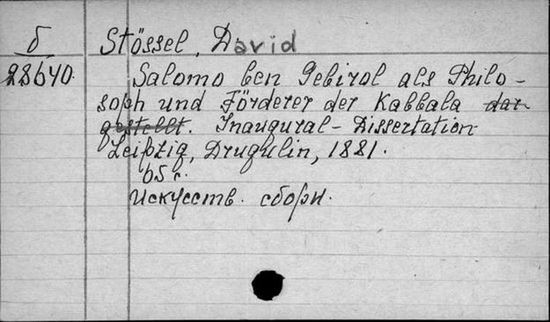 б Stössel, David
28640. Salomo ben Gebirol als Philo-
soph und Förderer der Kabbala dar-
gestellt. Inaugural-Dissertation
Leipzig, Drugulin, 1881.
65 с.
Искусств. сборн.